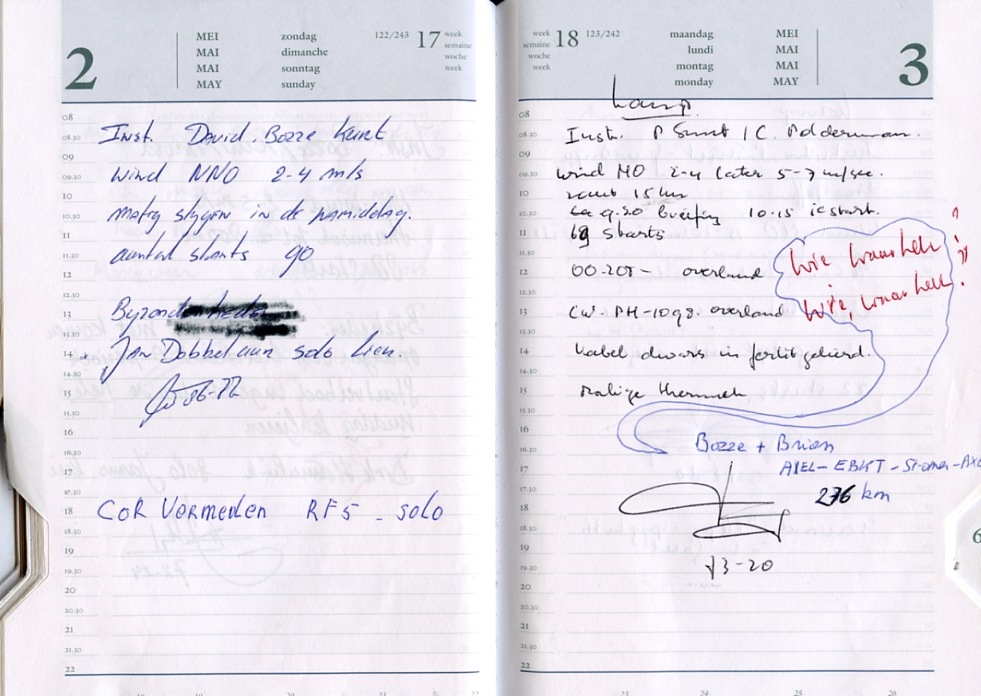 2
MEI zondag 122/243 17 week
MAI dimanche semaine
MAI sonntag woche
MAY sunday week
08
08.30 Inst. David. Bozze Kurt
09
09.30 wind NNO 2-4 m/s
10
10.30 matig stygen in de namiddag.
11
11.30 aantal starts 90
12
12.30
13 Byzond
13.30
14 Jan Dobbelaar solo Lien.
14.30
15
15.30
16
16.30
17
17.30
18 COR Vermeulen RF5 - solo
18.30
19
19.30
20
20.30
21
21.30
22
week 18 123/242 maandag MEI
semaine lundi MAI
woche montag MAI
week monday MAY
3
08
08.30 Inst. P Smit / C. Polderman.
09
09.30 wind NO 2-4 later 5-7 m/sec.
10 15 km
10.30 ca 9.20 briefing 10.15 1e start.
11 69 starts
11.30
12 OO-ZOT - overland
12.30
13 CW. PH-1098. overland
13.30
14 kabel dwars in
14.30
15 matige thermiek
15.30
16
16.30 Bozze + Brian
17 AXEL - EBKT - St-omer - Axe
17.30 276 km
18
18.30
19
19.30 13-20
20
20.30
21
21.30
22
6